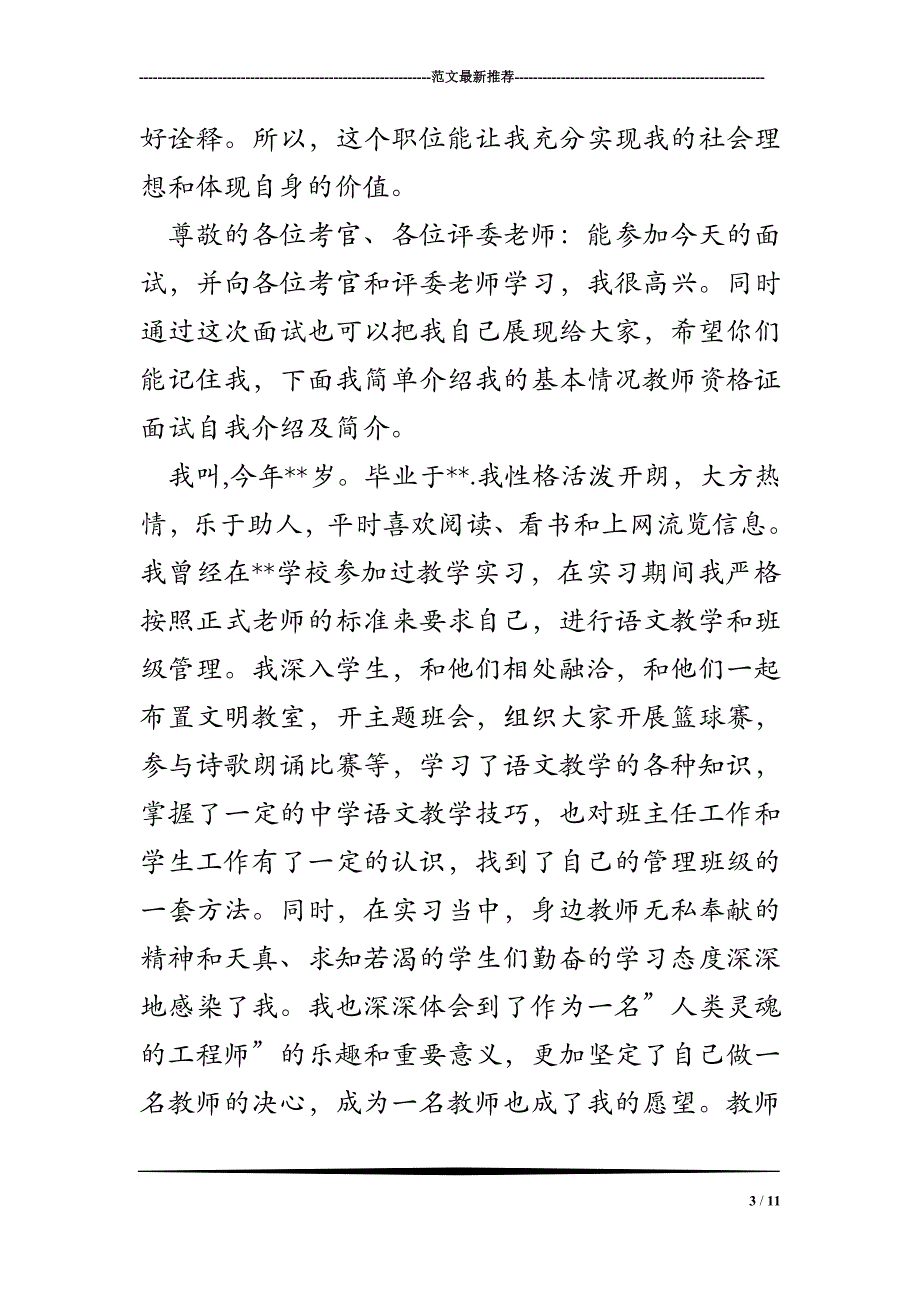 ---------------------------------------------------------------范文最新推荐------------------------------------------------------
好诠释。所以，这个职位能让我充分实现我的社会理
想和体现自身的价值。
尊敬的各位考官、各位评委老师：能参加今天的面
试，并向各位考官和评委老师学习，我很高兴。同时
通过这次面试也可以把我自己展现给大家，希望你们
能记住我，下面我简单介绍我的基本情况教师资格证
面试自我介绍及简介。
我叫,今年**岁。毕业于**.我性格活泼开朗，大方热
情，乐于助人，平时喜欢阅读、看书和上网流览信息。
我曾经在**学校参加过教学实习，在实习期间我严格
按照正式老师的标准来要求自己，进行语文教学和班
级管理。我深入学生，和他们相处融洽，和他们一起
布置文明教室，开主题班会，组织大家开展篮球赛，
参与诗歌朗诵比赛等，学习了语文教学的各种知识，
掌握了一定的中学语文教学技巧，也对班主任工作和
学生工作有了一定的认识，找到了自己的管理班级的
一套方法。同时，在实习当中，身边教师无私奉献的
精神和天真、求知若渴的学生们勤奋的学习态度深深
地感染了我。我也深深体会到了作为一名”人类灵魂
的工程师”的乐趣和重要意义，更加坚定了自己做一
名教师的决心，成为一名教师也成了我的愿望。教师
3 / 11